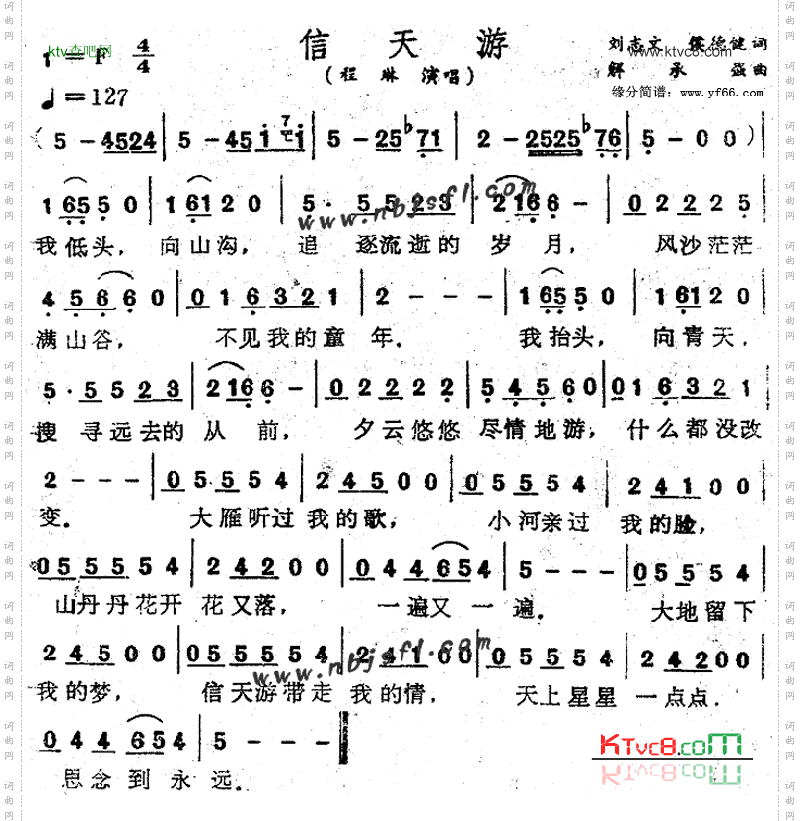 信天游
ktv查吧网
1=F 4/4
刘志文 侯德健词
www.ktvc8.com
(程琳 演唱)
解承强曲
♩=127
缘分简谱：www.yf66.com
(5-4524|5-45i 7i|5-25♭71|2-2525♭76|5-00)
1 65 5 0|1 61 2 0|5· 5 5 2 3|2 16 6 -|0 2 2 2 5|
www.nbjsfl.com
我低头， 向山沟， 追 逐流逝的 岁 月， 风沙茫茫
4 5 6 6 0|0 1 6 3 2 1|2 - - -|1 65 5 0|1 61 2 0|
满山谷， 不见我的童 年． 我抬头， 向青天，
5· 5 5 2 3|2 16 6 -|0 2 2 2 2|5 4 5 6 0|0 1 6 3 2 1|
搜 寻远去的 从 前， 夕云悠悠 尽情地游， 什么都没改
2 - - -|0 5 5 5 4|2 4 5 0 0|0 5 5 5 4|2 4 1 0 0|
变． 大雁听过 我的歌， 小河亲过 我的脸，
0 5 5 5 5 5 4|2 4 2 0 0|0 4 4 6 5 4|5 - - -|0 5 5 5 4|
山丹丹花开 花又落， 一遍又 一 遍． 大地留下
2 4 5 0 0|0 5 5 5 5 5 4|2 4 1 0 0|0 5 5 5 4|2 4 2 0 0|
www.nbjsfl.com
我的梦， 信天游带走 我的情， 天上星星 一点点．
0 4 4 6 5 4|5 - - -‖
思念到 永 远．
KTvc8.com
词曲网